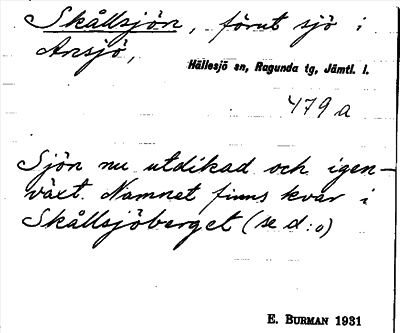 Skållsjön, förut sjö i
Ansjö,
Hällesjö sn, Ragunda tg, Jämtl. l.
479 a
Sjön nu utdikad och igen-
växt. Namnet finns kvar i
Skållsjöberget (se d:o)
E. BURMAN 1931